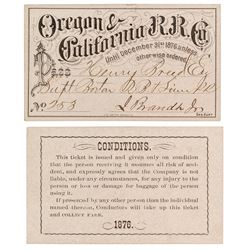 Oregon &
California R.R. Co.
Until December 31st 1876 unless
otherwise ordered
Pass
Henry
Supt Boston
No 253
CONDITIONS.
This ticket is issued and given only on condition
that the person receiving it assumes all risk of ac-
cident, and expressly agrees that the Company is not
liable, under any circumstances, for any injury to the
person or loss or damage for baggage of the person
using it.
If presented by any other person than the individual
named thereon, Conductors will take up this ticket
and COLLECT FARE.
1876.